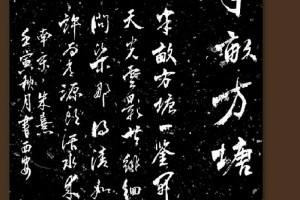 半畝方塘
半畝方塘一鑒開
天光雲影共徘徊
問渠那得清如
許為有源頭活水來
南宋 朱熹
壬寅秋月書西安